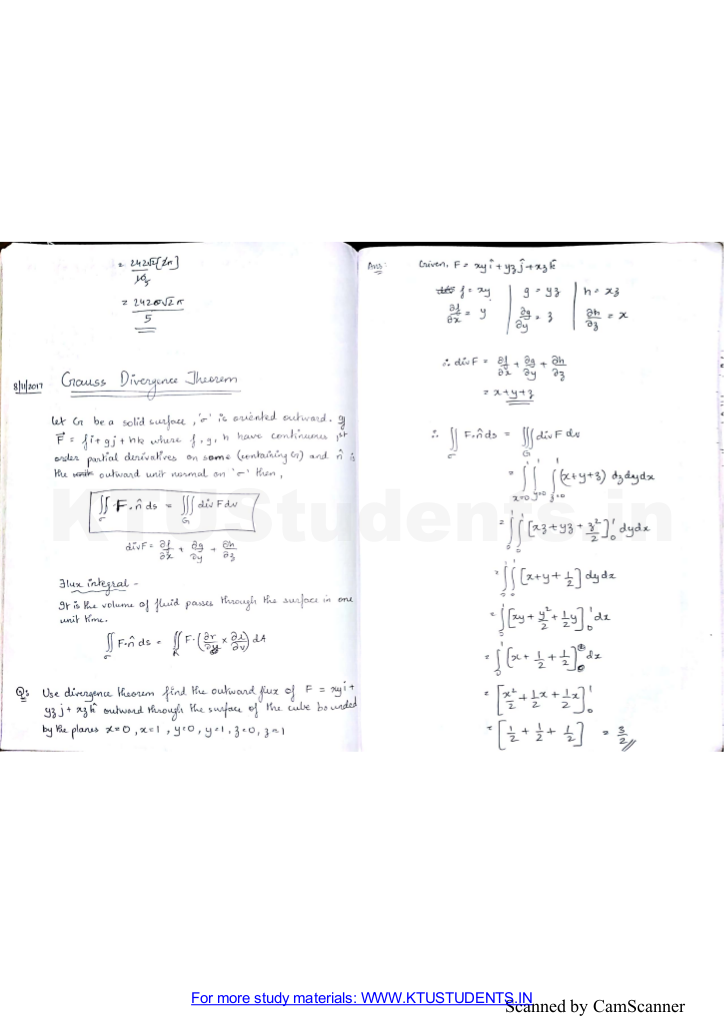 = 242√2 [2π] / 10 5
= 242√2 π / 5
8/11/2017 Gauss Divergence Theorem
Let G be a solid surface, 'σ' is oriented outward. If
F⃗ = fi + gj + hk where f, g, h have continuous 1st
order partial derivatives on some (containing G) and n̂ is
the outward unit normal on 'σ' then,
∬σ F.n̂ ds = ∭G div F dv
div F = ∂f/∂x + ∂g/∂y + ∂h/∂z
Flux integral -
It is the volume of fluid passes through the surface in one
unit time.
∬σ F.n̂ ds = ∬R F.(∂r/∂ × ∂/∂v) dA
Q: Use divergence theorem find the outward flux of F = xyi +
yzj + xzk̂ outward through the surface of the cube bounded
by the planes x=0, x=1, y=0, y=1, z=0, z=1
Ans: Given, F = xyî + yzĵ + xzk̂
f = xy | g = yz | h = xz
∂f/∂x = y | ∂g/∂y = z | ∂h/∂z = x
∴ div F = ∂f/∂x + ∂g/∂y + ∂h/∂z
= x+y+z
∴ ∬σ F.n̂ ds = ∭G div F dv
= ∫x=0^1 ∫y=0^1 ∫z=0^1 (x+y+z) dz dy dx
= ∫0^1 ∫0^1 [xz + yz + z²/2]0^1 dy dx
= ∫0^1 ∫0^1 [x+y+1/2] dy dx
= ∫0^1 [xy + y²/2 + 1/2 y]0^1 dx
= ∫0^1 [x + 1/2 + 1/2] dx
= [x²/2 + 1/2 x + 1/2 x]0^1
= [1/2 + 1/2 + 1/2] = 3/2 //
KTUStudents.in
For more study materials: WWW.KTUSTUDENTS.IN
Scanned by CamScanner